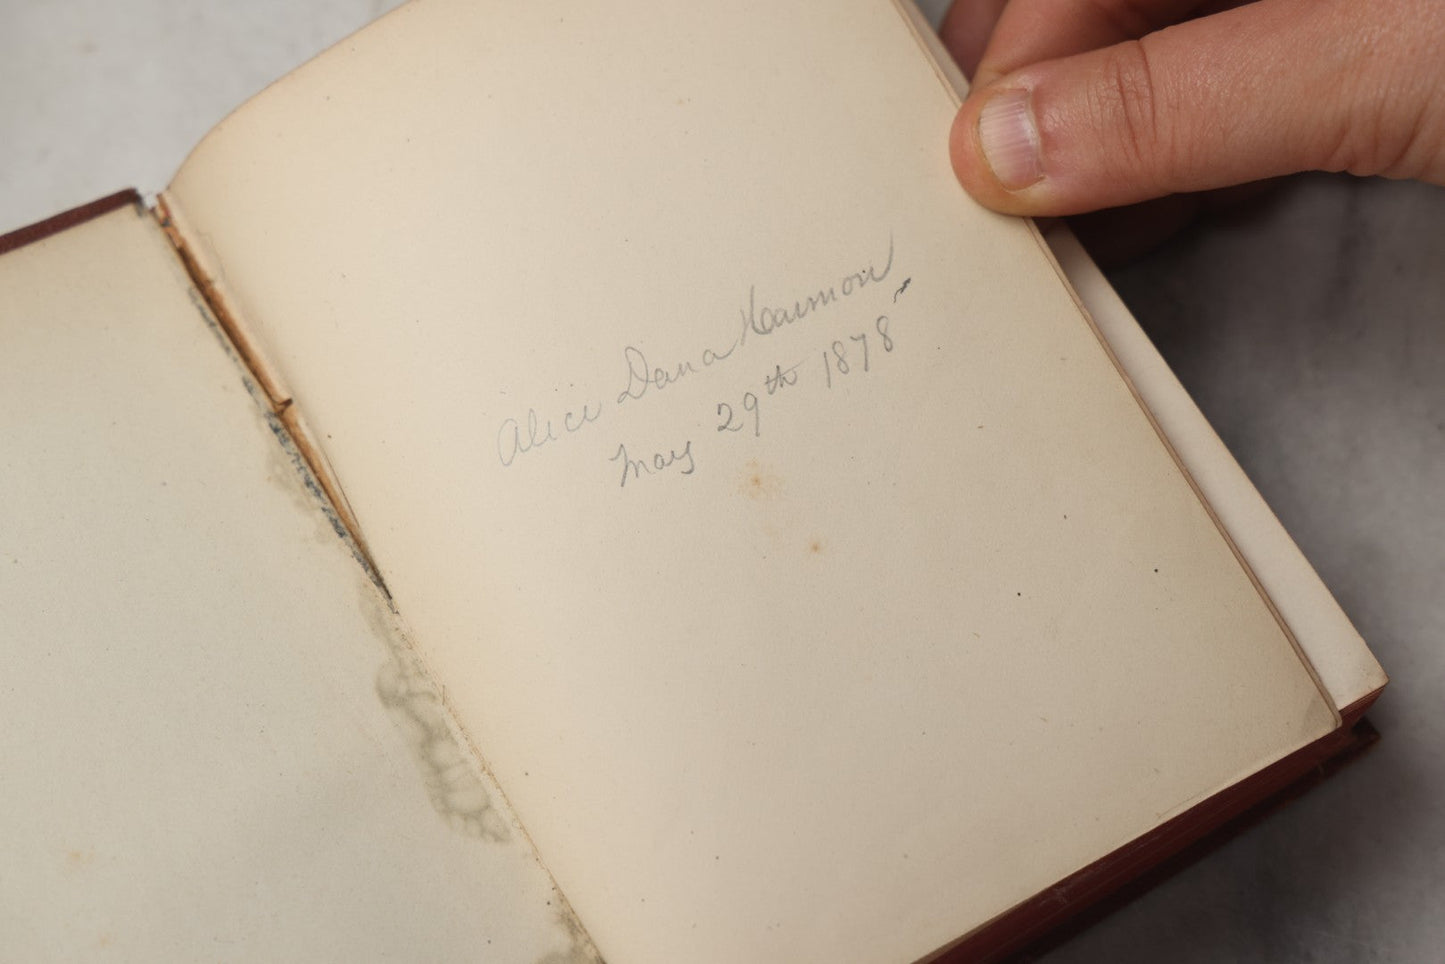 Alice Dana Harmon,
May 29th 1878